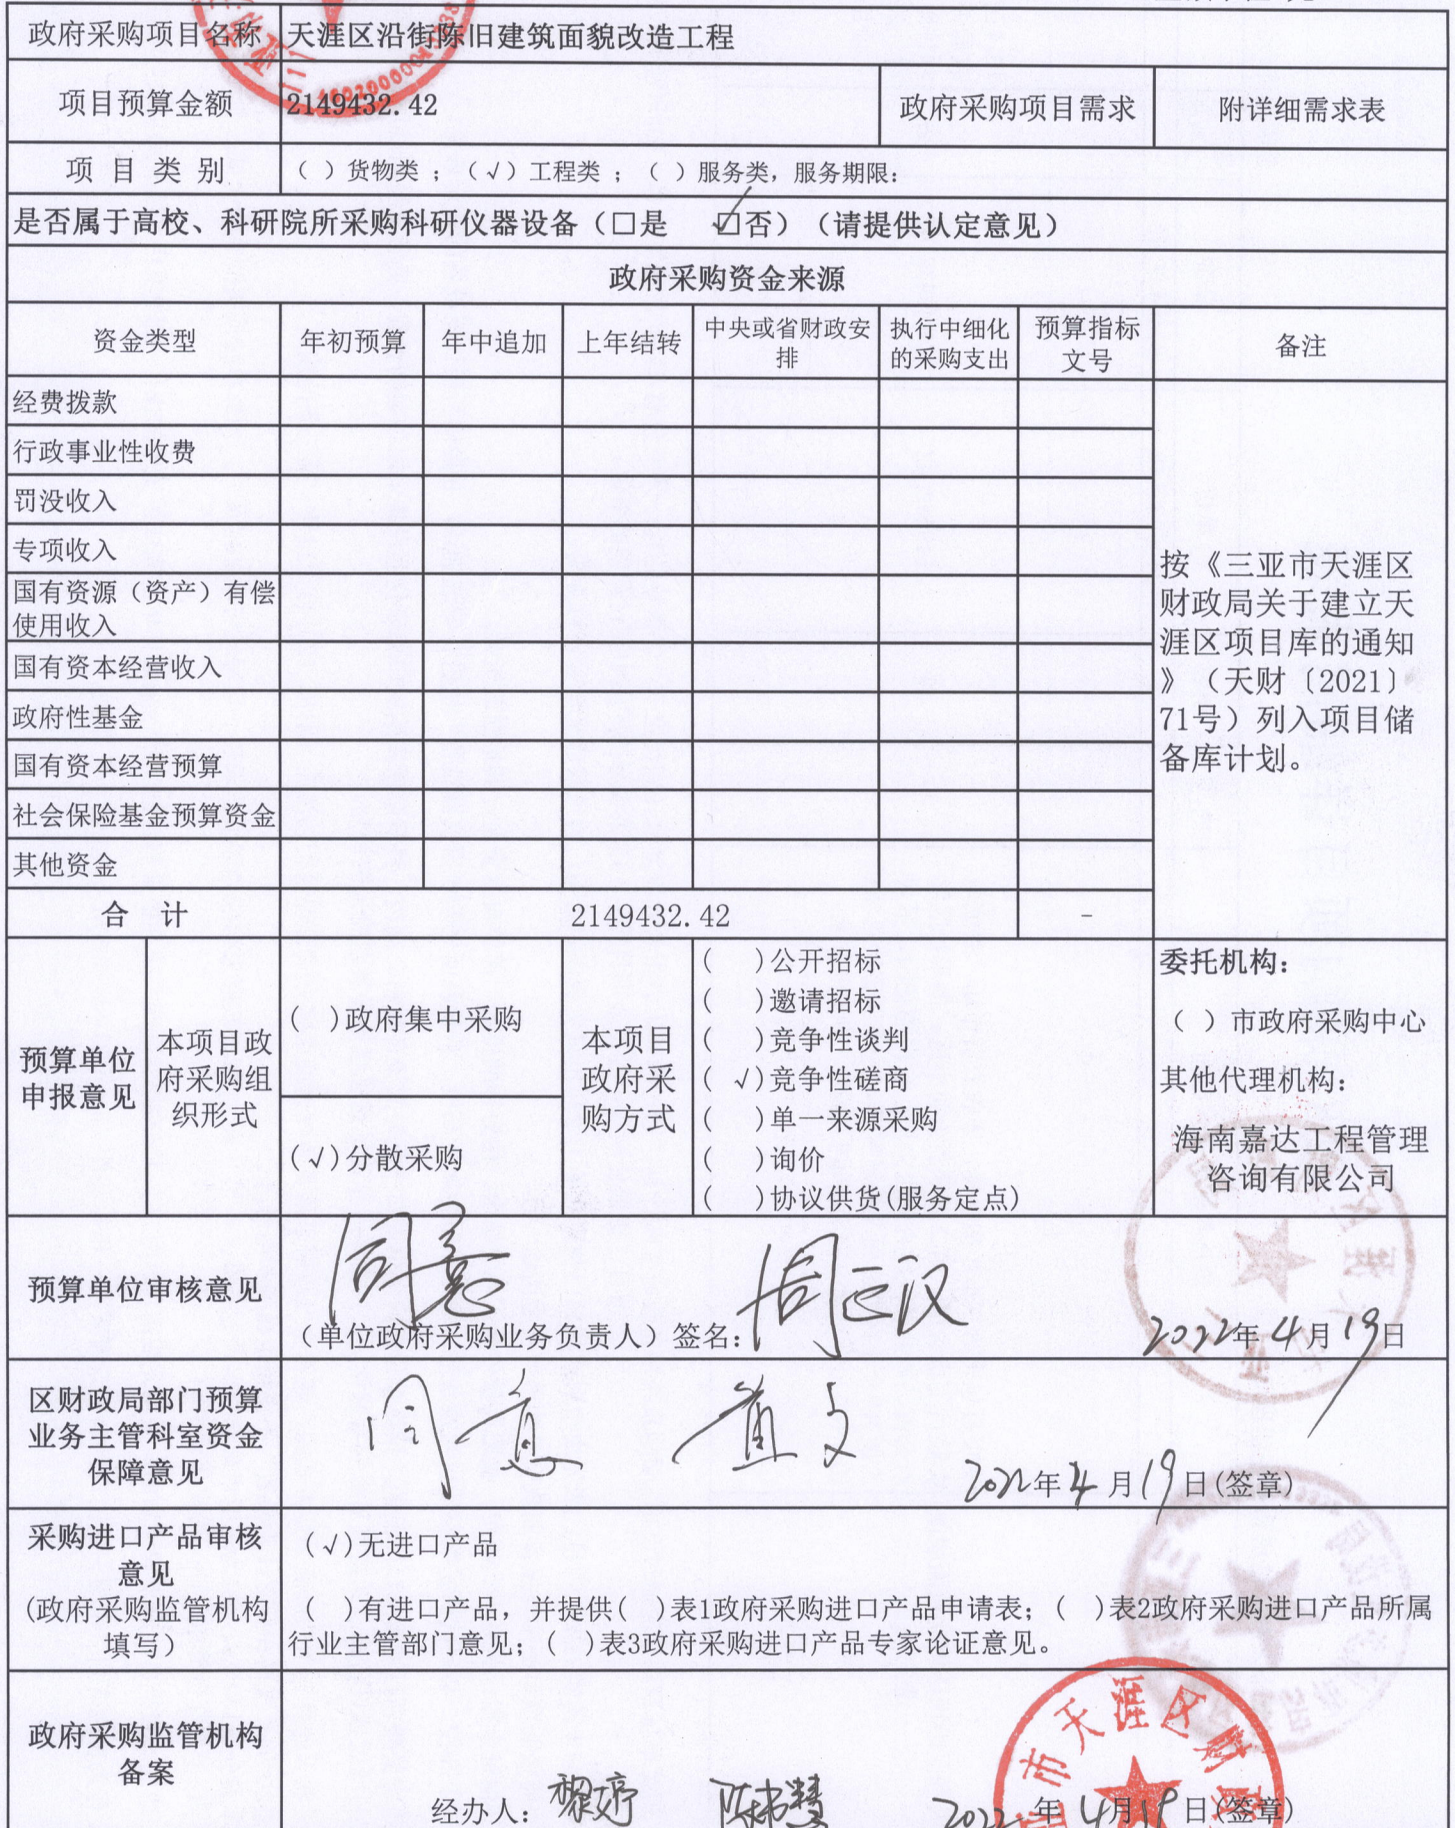 政府采购项目名称 天涯区沿街陈旧建筑面貌改造工程
项目预算金额 2149432.42 政府采购项目需求 附详细需求表
项 目 类 别 （ ）货物类 ；（√）工程类 ；（ ）服务类，服务期限：
是否属于高校、科研院所采购科研仪器设备（□是 ☑否）（请提供认定意见）
政府采购资金来源
资金类型 年初预算 年中追加 上年结转 中央或省财政安排 执行中细化的采购支出 预算指标文号 备注
经费拨款
行政事业性收费
罚没收入
专项收入
国有资源（资产）有偿
使用收入
国有资本经营收入
政府性基金
国有资本经营预算
社会保险基金预算资金
其他资金
按《三亚市天涯区
财政局关于建立天
涯区项目库的通知
》（天财〔2021〕
71号）列入项目储
备库计划。
合 计 2149432.42 -
预算单位
申报意见
本项目政
府采购组
织形式
( )政府集中采购
(√)分散采购
本项目
政府采
购方式
( )公开招标
( )邀请招标
( )竞争性谈判
( √)竞争性磋商
( )单一来源采购
( )询价
( )协议供货(服务定点)
委托机构：
（ ）市政府采购中心
其他代理机构：
海南嘉达工程管理
咨询有限公司
预算单位审核意见
同意
（单位政府采购业务负责人）签名： 2022年4月19日
区财政局部门预算
业务主管科室资金
保障意见
同意
2022年4月19日(签章)
采购进口产品审核
意见
(政府采购监管机构
填写）
(√)无进口产品
( )有进口产品，并提供( )表1政府采购进口产品申请表；( )表2政府采购进口产品所属
行业主管部门意见；( )表3政府采购进口产品专家论证意见。
政府采购监管机构
备案
经办人： 2022年4月19日(签章)
市天涯区财政